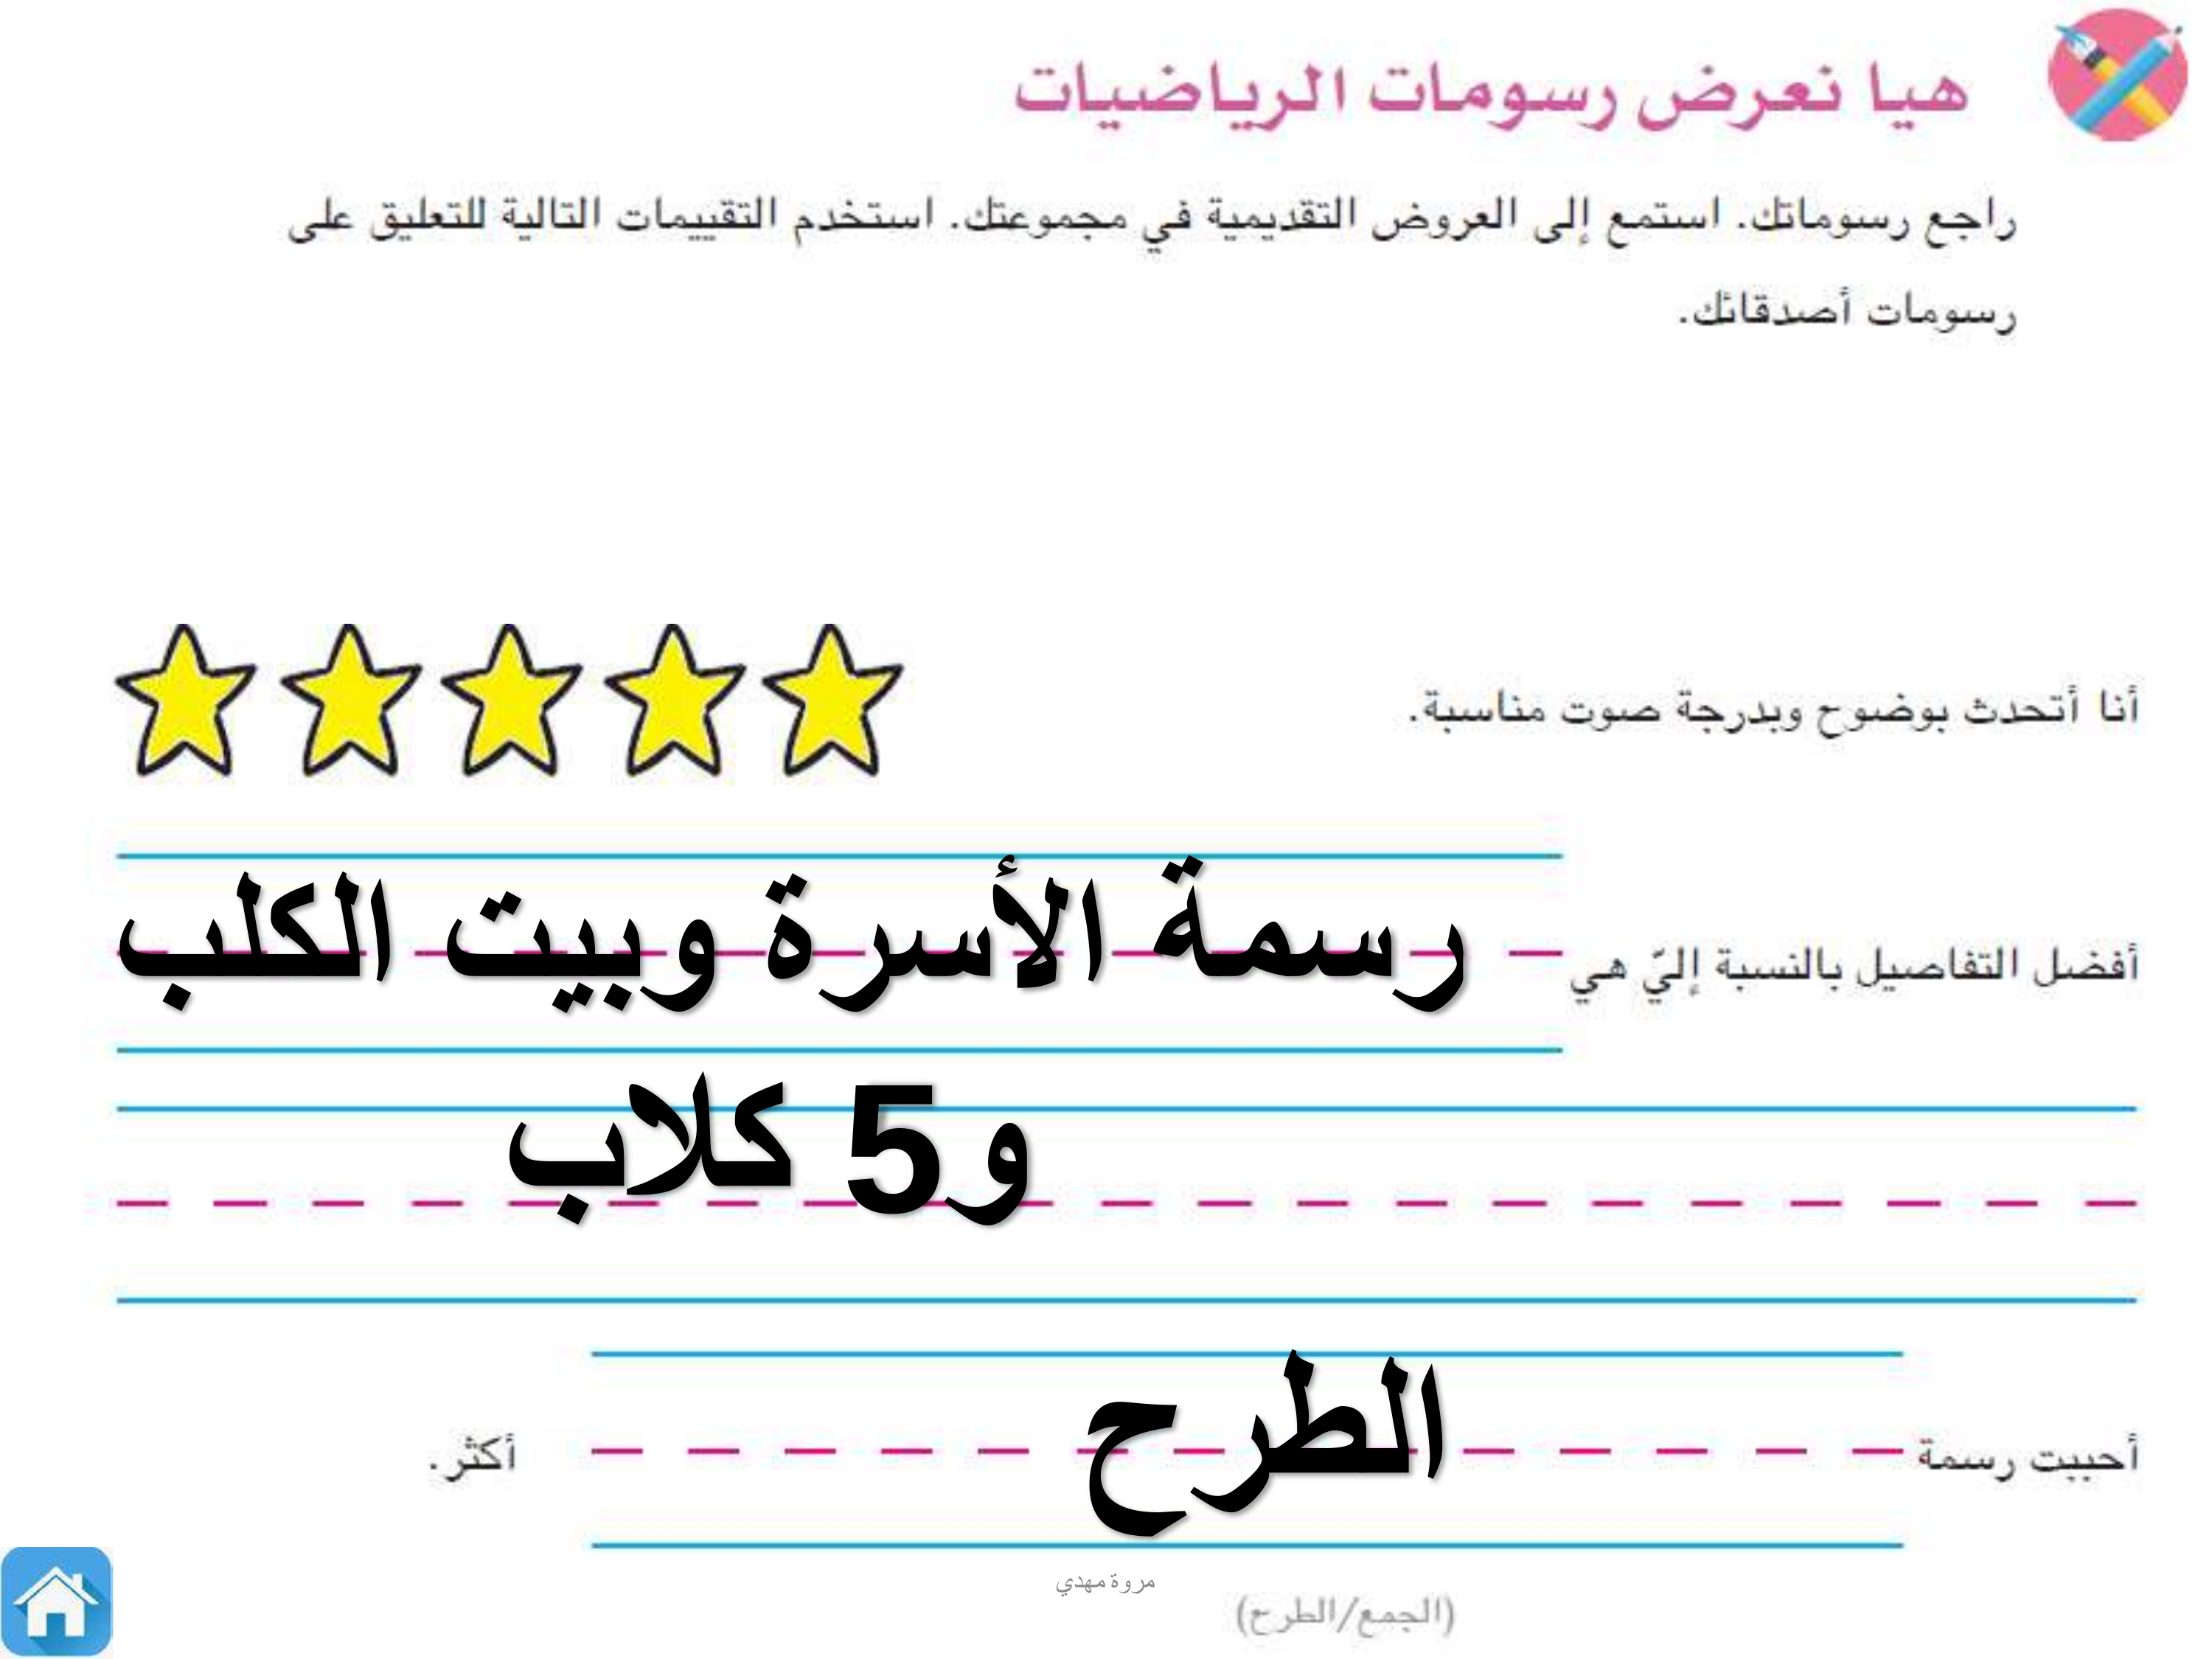 هيا نعرض رسومات الرياضيات
راجع رسوماتك. استمع إلى العروض التقديمية في مجموعتك. استخدم التقييمات التالية للتعليق على
رسومات أصدقائك.
أنا أتحدث بوضوح وبدرجة صوت مناسبة.
أفضل التفاصيل بالنسبة إليّ هي رسمة الأسرة وبيت الكلب
و5 كلاب
أحببت رسمة الطرح أكثر.
مروة مهدي
(الجمع/الطرح)